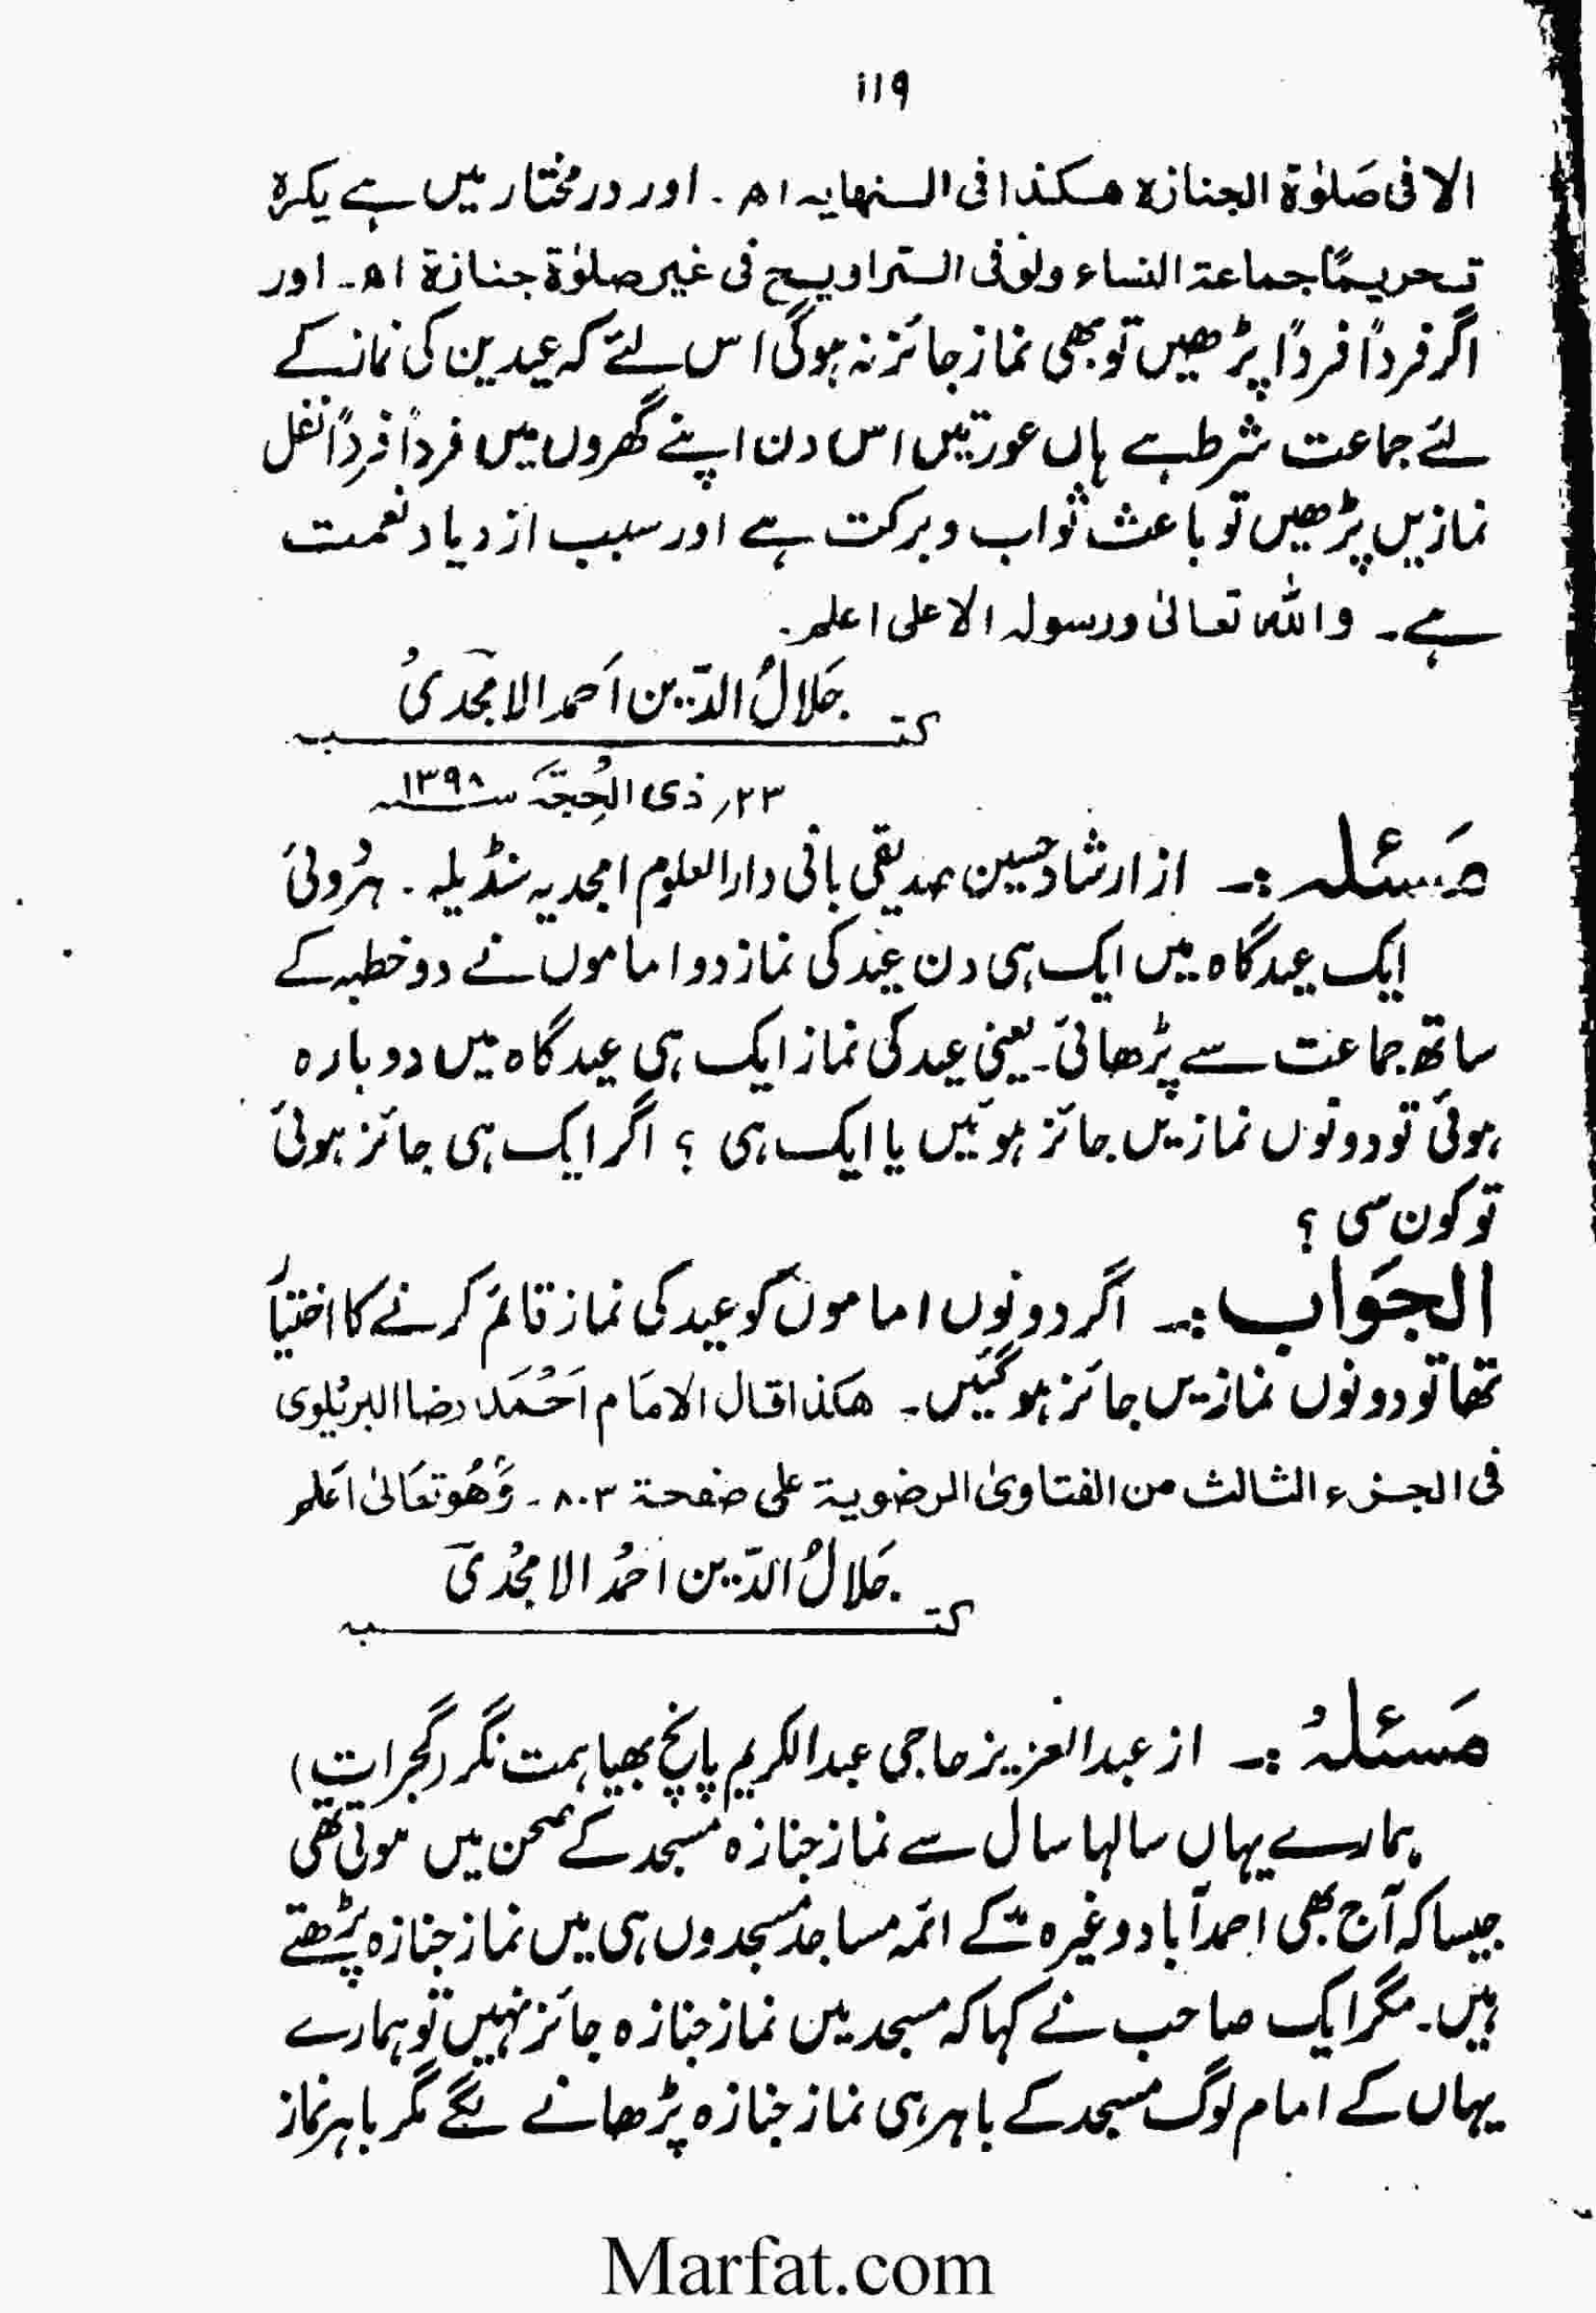 ۱۱۹
الا فی صَلوٰۃ الجنازہ ھٰکذا فی النہایہ اھ۔ اور درمختار میں ہے یکرہ
تحریمًا جماعۃ النساء ولو فی التراویح فی غیر صلوٰۃ جنازۃ اھ۔ اور
اگر فرداً فرداً پڑھیں تو بھی نماز جائز نہ ہوگی اس لئے کہ عیدین کی نماز کے
لئے جماعت شرط ہے ہاں عورتیں اس دن اپنے گھروں میں فرداً فرداً نفل
نمازیں پڑھیں تو باعث ثواب و برکت ہے اور سبب ازدیاد نعمت
ہے۔ واللہ تعالیٰ ورسولہ الاعلی اعلم۔
جَلالُ الدّین اَحمد الامجدیُ
کتبہ
۲۳؍ ذی الحُجّہ سنہ ۱۳۹۸
مَسئلہ :۔ از ارشاد حسین صدیقی بانی دارالعلوم امجدیہ سنڈیلہ۔ ہردوئی
ایک عیدگاہ میں ایک ہی دن عید کی نماز دو اماموں نے دو خطبہ کے
ساتھ جماعت سے پڑھائی۔ یعنی عید کی نماز ایک ہی عیدگاہ میں دوبارہ
ہوئی تو دونوں نمازیں جائز ہوئیں یا ایک ہی ؟ اگر ایک ہی جائز ہوئی
تو کون سی ؟
الجَواب :۔ اگر دونوں اماموں کو عید کی نماز قائم کرنے کا اختیار
تھا تو دونوں نمازیں جائز ہوگئیں۔ ھٰکذا قال الامَام اَحْمَد رضا البریلوی
فی الجزء الثالث من الفتاویٰ الرضویۃ علی صفحۃ ۸۰۳۔ وَھُوَ تعَالیٰ اَعلم
جَلالُ الدّین احمدُ الامجدی
کتبہ
مَسئلہُ :۔ از عبدالعزیز حاجی عبدالکریم پانچ بھیا ہمت نگر (گجرات)
ہمارے یہاں سالہا سال سے نماز جنازہ مسجد کے صحن میں ہوتی تھی
جیسا کہ آج بھی احمدآباد وغیرہ کے ائمہ مساجد مسجدوں ہی میں نماز جنازہ پڑھتے
ہیں۔ مگر ایک صاحب نے کہا کہ مسجد میں نماز جنازہ جائز نہیں تو ہمارے
یہاں کے امام لوگ مسجد کے باہر ہی نماز جنازہ پڑھانے لگے مگر باہر نماز
Marfat.com